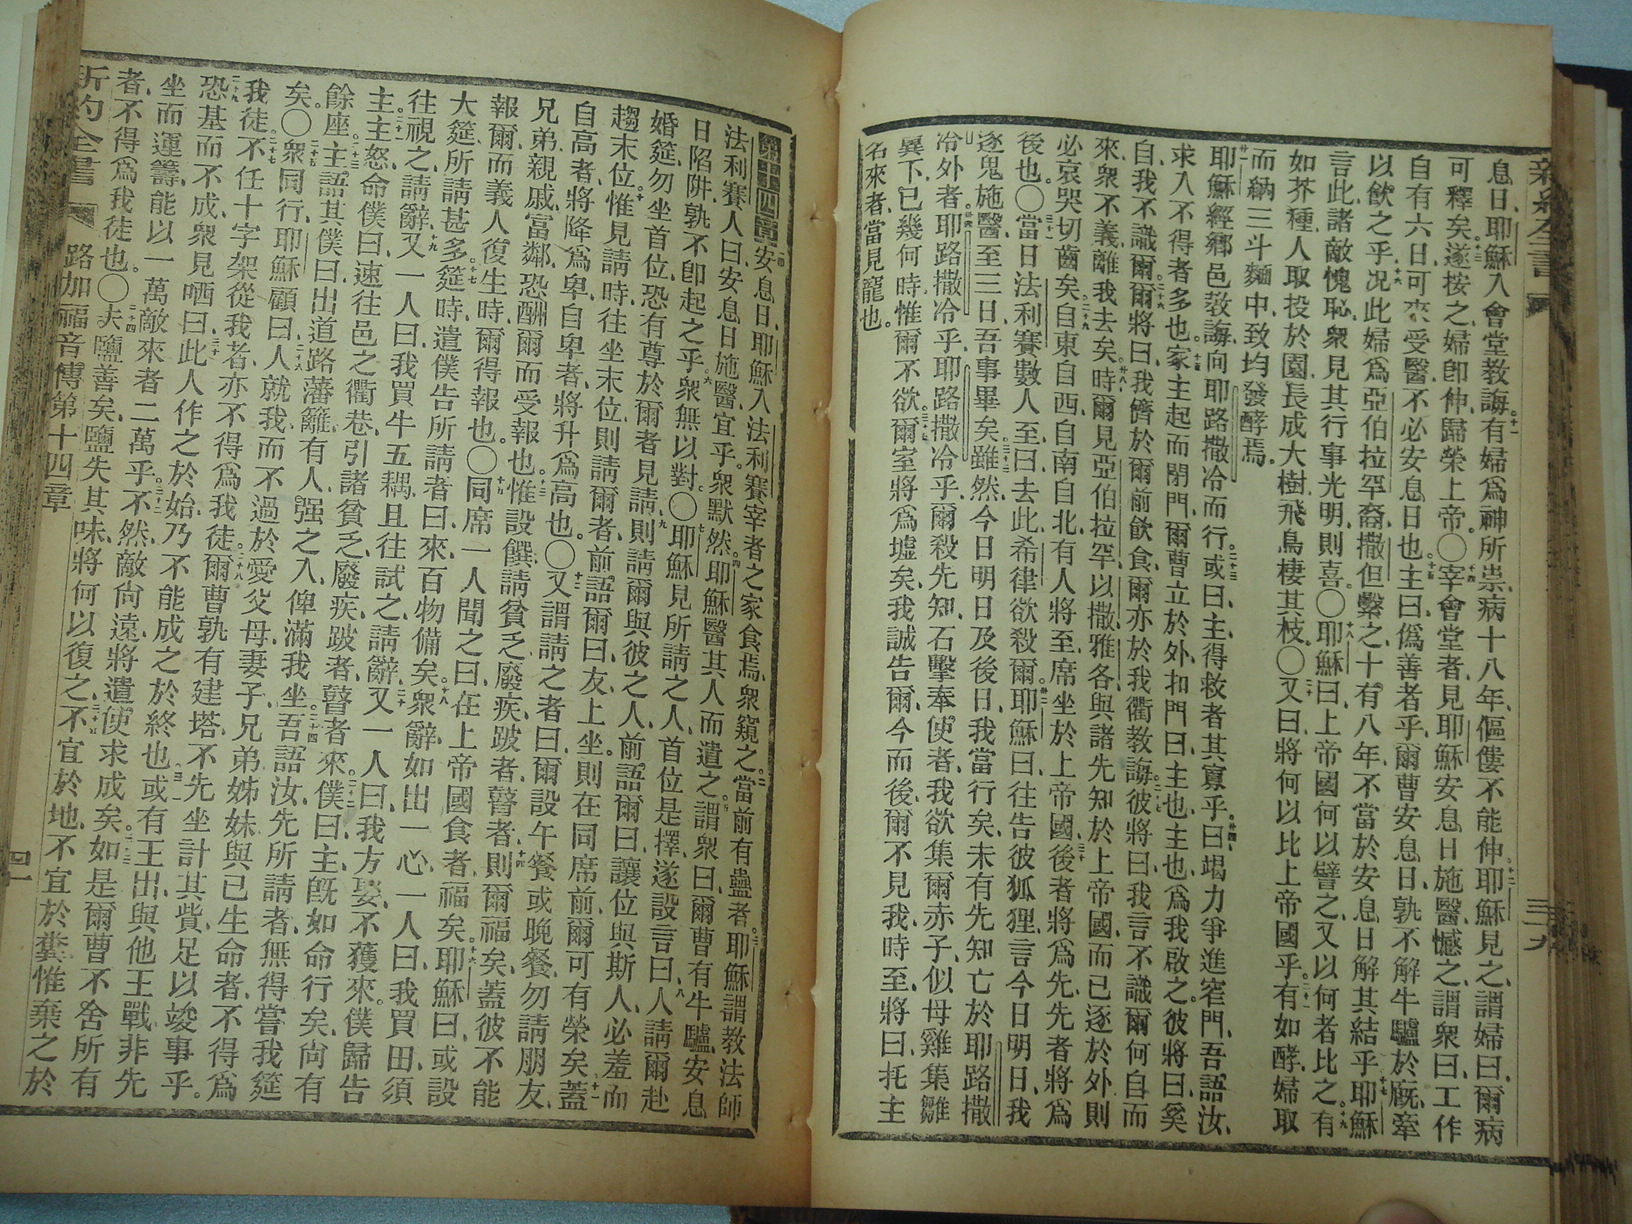 息日、耶穌入會堂教誨、有婦爲神所祟、病十八年、傴僂不能伸、耶穌見之、謂婦曰、爾病
可釋矣、遂按之、婦卽伸、歸榮上帝。〇宰會堂者、見耶穌安息日施醫、憾之、謂衆曰、工作
自有六日、可來受醫、不必安息日也、主曰、僞善者乎、爾曹安息日、孰不解牛驢於廐、牽
以飲之乎、况此婦爲亞伯拉罕裔、撒但繫之、十有八年、不當於安息日解其結乎、耶穌
言此、諸敵愧恥、衆見其行事光明、則喜。〇耶穌曰、上帝國何以譬之、又以何者比之、有
如芥種、人取投於園、長成大樹、飛鳥棲其枝。〇又曰、將何以比上帝國乎、有如酵、婦取
而納三斗麵中、致均發酵焉。
耶穌經鄉邑教誨、向耶路撒冷而行、或曰、主、得救者其寡乎、曰、竭力爭進窄門、吾語汝、
求入不得者多也、家主起而閉門、爾曹立於外、扣門曰、主也、主也、爲我啟之、彼將曰、奚
自、我不識爾、爾將曰、我儕於爾前飲食、爾亦於我衢教誨、彼將曰、我言不識爾何自而
來、衆不義離我去矣、時爾見亞伯拉罕、以撒、雅各、與諸先知於上帝國、而已逐於外、則
必哀哭切齒矣、自東自西、自南自北、有人將至、席坐於上帝國、後者將爲先、先者將爲
後也。〇當日法利賽數人至、曰、去此、希律欲殺爾、耶穌曰、往告彼狐狸言、今日明日、我
逐鬼施醫、至三日、吾事畢矣、雖然、今日明日及後日、我當行矣、未有先知亡於耶路撒
冷外者、耶路撒冷乎、耶路撒冷乎、爾殺先知、石擊奉使者、我欲集爾赤子、似母雞集雛
翼下、已幾何時、惟爾不欲、爾室將爲墟矣、我誠告爾、今而後、爾不見我、時至、將曰、托主
名來者、當見寵也。
新約全書
三十九
第十四章 安息日、耶穌入法利賽宰者之家食焉、衆窺之、當前有蠱者、耶穌謂教法師
法利賽人曰、安息日施醫、宜乎、衆默然、耶穌醫其人而遣之、謂衆曰、爾曹有牛驢、安息
日陷阱、孰不卽起之乎、衆無以對。〇耶穌見所請之人、首位是擇、遂設言曰、人請爾赴
婚筵、勿坐首位、恐有尊於爾者見請、則請爾與彼之人、前語爾曰、讓位與斯人、必羞而
趨末位、惟見請時、往坐末位、則請爾者、前語爾曰、友、上坐、則在同席前、爾可有榮矣、蓋
自高者、將降爲卑、自卑者、將升爲高也。〇又謂請之者曰、爾設午餐、或晚餐、勿請朋友、
兄弟、親戚、富鄰、恐酬爾而受報也、惟設饌、請貧乏、廢疾、跛者、瞽者、則爾福矣、蓋彼不能
報爾、而義人復生時、爾得報也。〇同席一人聞之曰、在上帝國食者福矣、耶穌曰、或設
大筵、所請甚多、筵時、遣僕告所請者曰、來、百物備矣、衆辭如出一心、一人曰、我買田、須
往視之、請辭、又一人曰、我買牛五耦、且往試之、請辭、又一人曰、我方娶、不獲來、僕歸告
主、主怒、命僕曰、速往邑之衢巷、引諸貧乏、廢疾、跛者、瞽者來、僕曰、主旣如命行矣、尙有
餘座、主語其僕曰、出道路藩籬、有人、强之入、俾滿我坐、吾語汝、先所請者、無得嘗我筵
矣。〇衆同行、耶穌顧曰、人就我、而不過於愛父母、妻子、兄弟、姊妹、與己生命者、不得爲
我徒、不任十字架從我者、亦不得爲我徒、爾曹孰有建塔、不先坐計其貲、足以竣事乎、
恐基而不成、衆見哂曰、此人作之於始、乃不能成之於終也、或有王出、與他王戰、非先
坐而運籌、能以一萬敵來者二萬乎、不然、敵尙遠、將遣使求成矣、如是、爾曹不舍所有
者、不得爲我徒也。〇夫鹽善矣、鹽失其味、將何以復之、不宜於地、不宜於糞、惟棄之於
新約全書 路加福音傳第十四章 四十